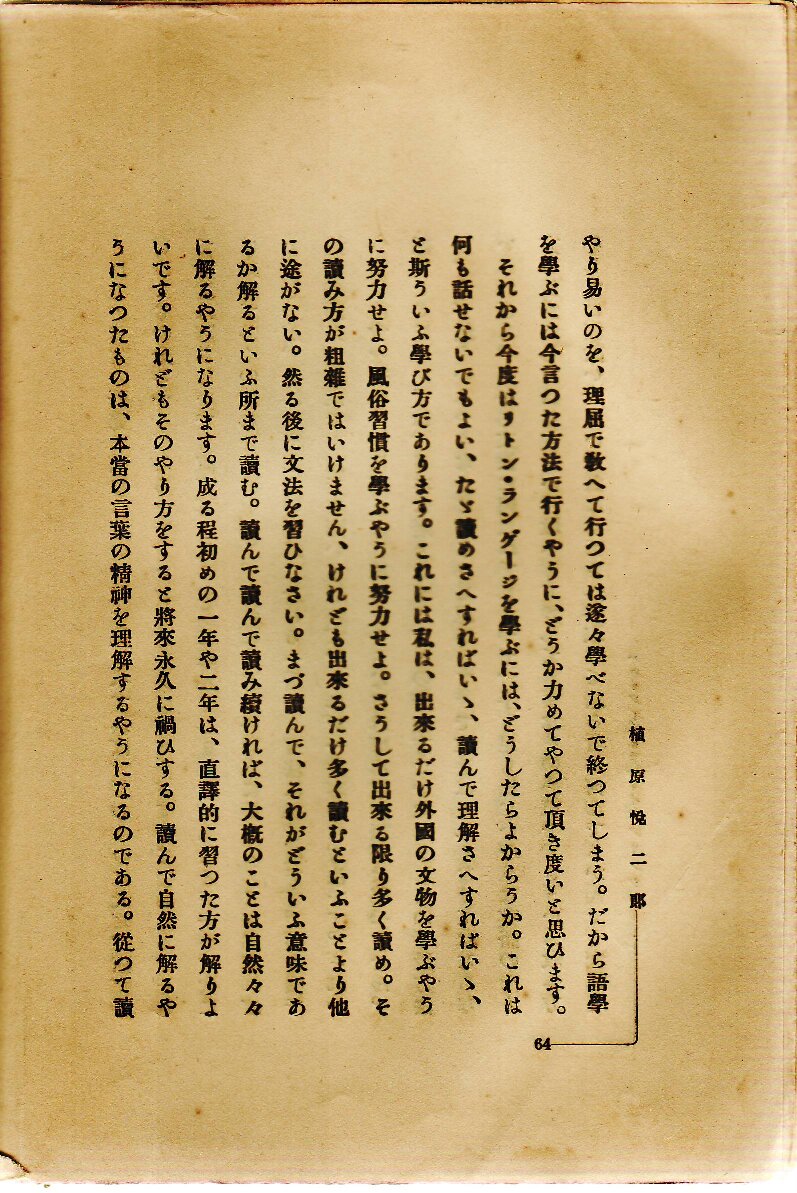 植原悦二郎
やり易いのを、理屈で教へて行つては遂々學べないで終つてしまう。だから語學
を學ぶには今言つた方法で行くやうに、どうか力めてやつて頂き度いと思ひます。
それから今度はリトン・ラングージを學ぶには、どうしたらよからうか。これは
何も話せないでもよい、たゞ讀めさへすればいゝ、讀んで理解さへすればいゝ、
と斯ういふ學び方であります。これには私は、出來るだけ外國の文物を學ぶやう
に努力せよ。風俗習慣を學ぶやうに努力せよ。さうして出來る限り多く讀め。そ
の讀み方が粗雜ではいけません、けれども出來るだけ多く讀むといふことより他
に途がない。然る後に文法を習ひなさい。まづ讀んで、それがどういふ意味であ
るか解るといふ所まで讀む。讀んで讀んで讀み續ければ、大槪のことは自然々々
に解るやうになります。成る程初めの一年や二年は、直譯的に習つた方が解りよ
いです。けれどもそのやり方をすると將來永久に禍ひする。讀んで自然に解るや
うになつたものは、本當の言葉の精神を理解するやうになるのである。從つて讀
64